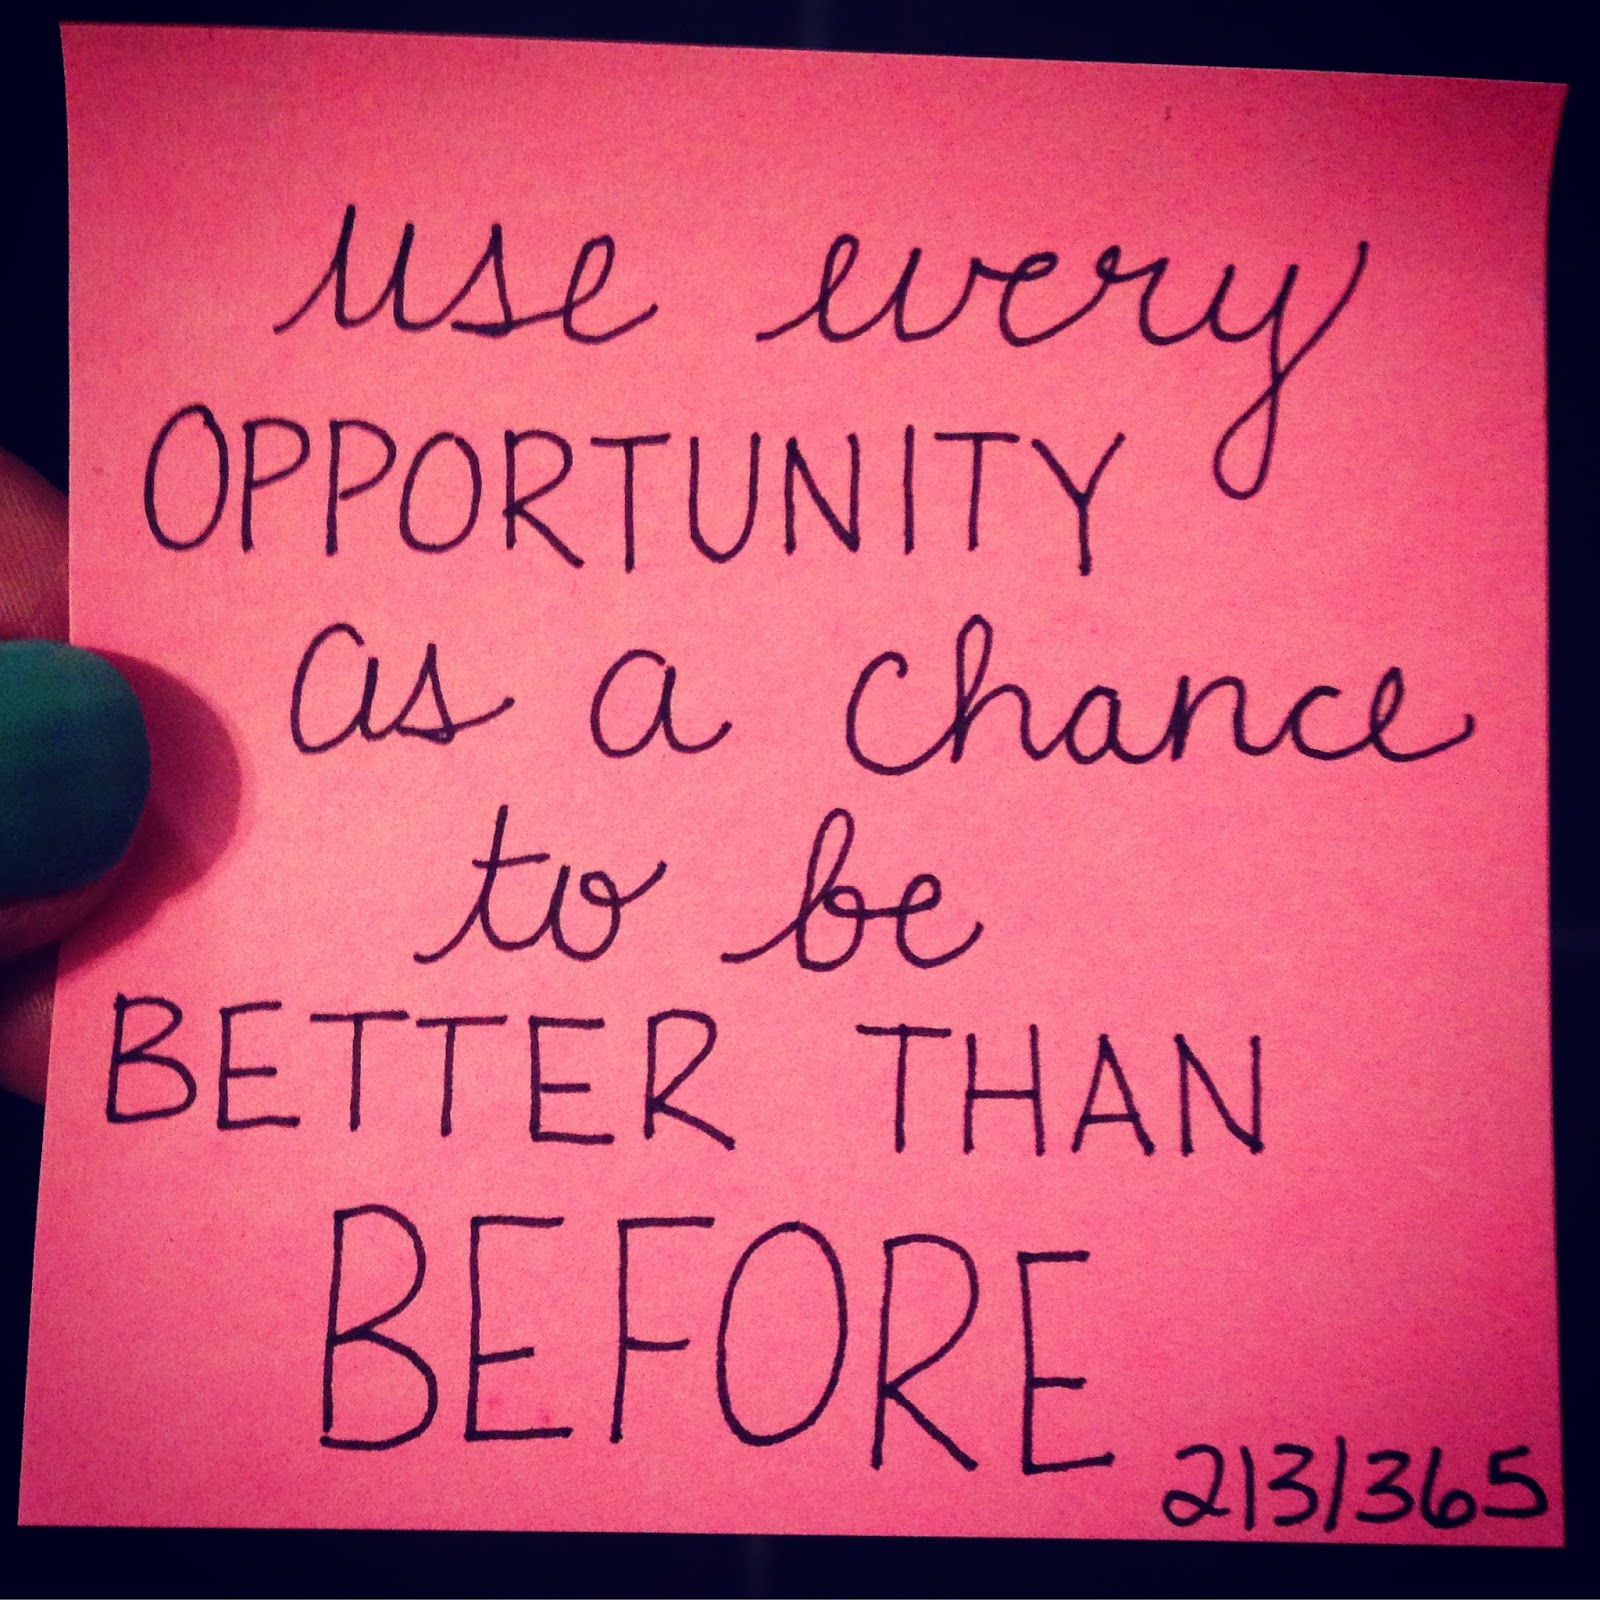 use every
OPPORTUNITY
as a chance
to be
BETTER THAN
BEFORE
213/365